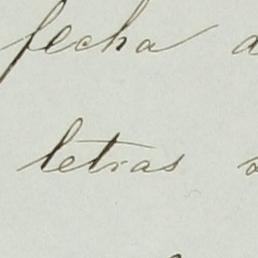 fecha
letras